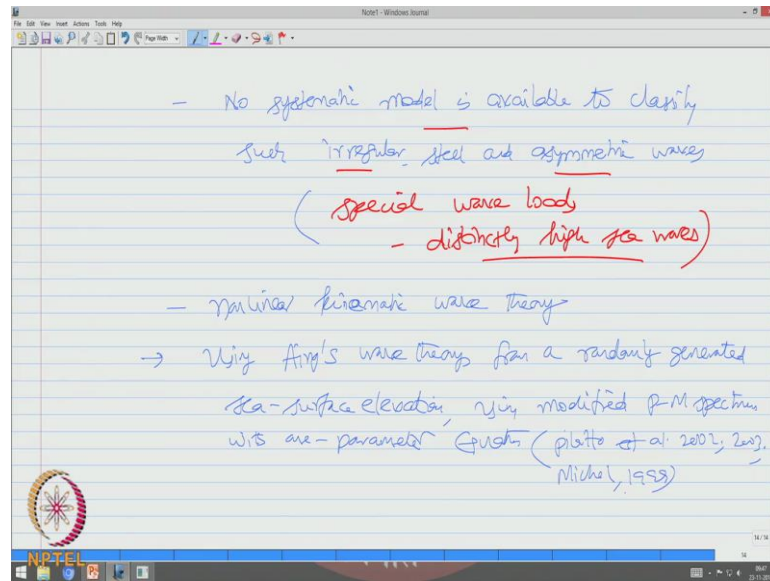 Note1 - Windows Journal
File Edit View Insert Actions Tools Help
Page Width
- No systematic model is available to classify
such irregular, steel and asymmetric waves
(special wave loads
- distinctly high sea waves)
- nonlinear kinematic wave theory
→ Using Airy's wave theory from a randomly generated
sea-surface elevation, using modified P-M spectrum
with one-parameter (platto et al. 2002; 2003,
Michel, 1999)
14/14
14
NPTEL
09:47